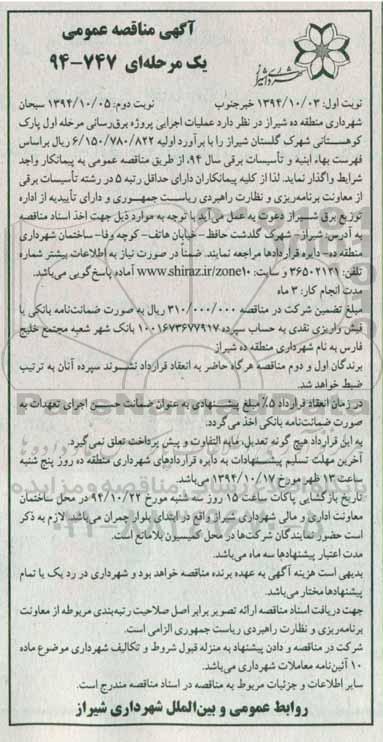 آگهی مناقصه عمومی
یک مرحله‌ای ۷۴۷-۹۴
شهرداری شیراز
نوبت اول: ۱۳۹۴/۱۰/۰۳ خبرجنوب نوبت دوم: ۱۳۹۴/۱۰/۰۵ سبحان
شهرداری منطقه ده شیراز در نظر دارد عملیات اجرایی پروژه برق‌رسانی مرحله اول پارک
کوهستانی شهرک گلستان شیراز را با برآورد اولیه ۶/۱۵۰/۷۸۰/۸۲۲ ریال براساس
فهرست بهاء ابنیه و تأسیسات برقی سال ۹۴، از طریق مناقصه عمومی به پیمانکار واجد
شرایط واگذار نماید. لذا از کلیه پیمانکاران دارای حداقل رتبه ۵ در رشته تأسیسات برقی
از معاونت برنامه‌ریزی و نظارت راهبردی ریاست جمهوری و دارای تأییدیه از اداره
توزیع برق شیراز دعوت به عمل می‌آید با توجه به موارد ذیل جهت اخذ اسناد مناقصه
به آدرس: شیراز- شهرک گلدشت حافظ- خیابان هاتف- کوچه وفا- ساختمان شهرداری
منطقه ده- دایره قراردادها مراجعه نمایند. ضمناً در صورت نیاز به اطلاعات بیشتر شماره
تلفن: ۳۶۵۰۲۱۲۱ و سایت: www.shiraz.ir/zone10 آماده پاسخ‌گویی می‌باشد.
مدت انجام کار: ۳ ماه
مبلغ تضمین شرکت در مناقصه ۳۱۰/۰۰۰/۰۰۰ ریال به صورت ضمانت‌نامه بانکی یا
فیش واریزی نقدی به حساب سپرده ۱۰۰۱۶۷۳۶۷۷۹۱۷ بانک شهر شعبه مجتمع خلیج
فارس به نام شهرداری منطقه ده شیراز
برندگان اول و دوم مناقصه هرگاه حاضر به انعقاد قرارداد نشوند سپرده آنان به ترتیب
ضبط خواهد شد.
در زمان انعقاد قرارداد ۵٪ مبلغ پیشنهادی به عنوان ضمانت حسن اجرای تعهدات به
صورت ضمانت‌نامه بانکی اخذ می‌گردد.
به این قرارداد هیچ گونه تعدیل، مابه التفاوت و پیش پرداخت تعلق نمی‌گیرد.
آخرین مهلت تسلیم پیشنهادات به دایره قراردادهای شهرداری منطقه ده روز پنج شنبه
ساعت ۱۳ ظهر مورخ ۱۳۹۴/۱۰/۱۷ می‌باشد.
تاریخ بازگشایی پاکات ساعت ۱۵ روز سه شنبه مورخ ۹۴/۱۰/۲۲ در محل ساختمان
معاونت اداری و مالی شهرداری شیراز واقع در ابتدای بلوار چمران می‌باشد. لازم به ذکر
است حضور نمایندگان شرکت‌ها در محل کمیسیون بلامانع است.
مدت اعتبار پیشنهادها سه ماه می‌باشد.
بدیهی است هزینه آگهی به عهده برنده مناقصه خواهد بود و شهرداری در رد یک یا تمام
پیشنهادها مختار می‌باشد.
جهت دریافت اسناد مناقصه ارائه تصویر برابر اصل صلاحیت رتبه‌بندی مربوطه از معاونت
برنامه‌ریزی و نظارت راهبردی ریاست جمهوری الزامی است.
شرکت در مناقصه و دادن پیشنهاد به منزله قبول شروط و تکالیف شهرداری موضوع ماده
۱۰ آئین‌نامه معاملات شهرداری می‌باشد.
سایر اطلاعات و جزئیات مربوط به مناقصه در اسناد مناقصه مندرج است.
روابط عمومی و بین‌الملل شهرداری شیراز